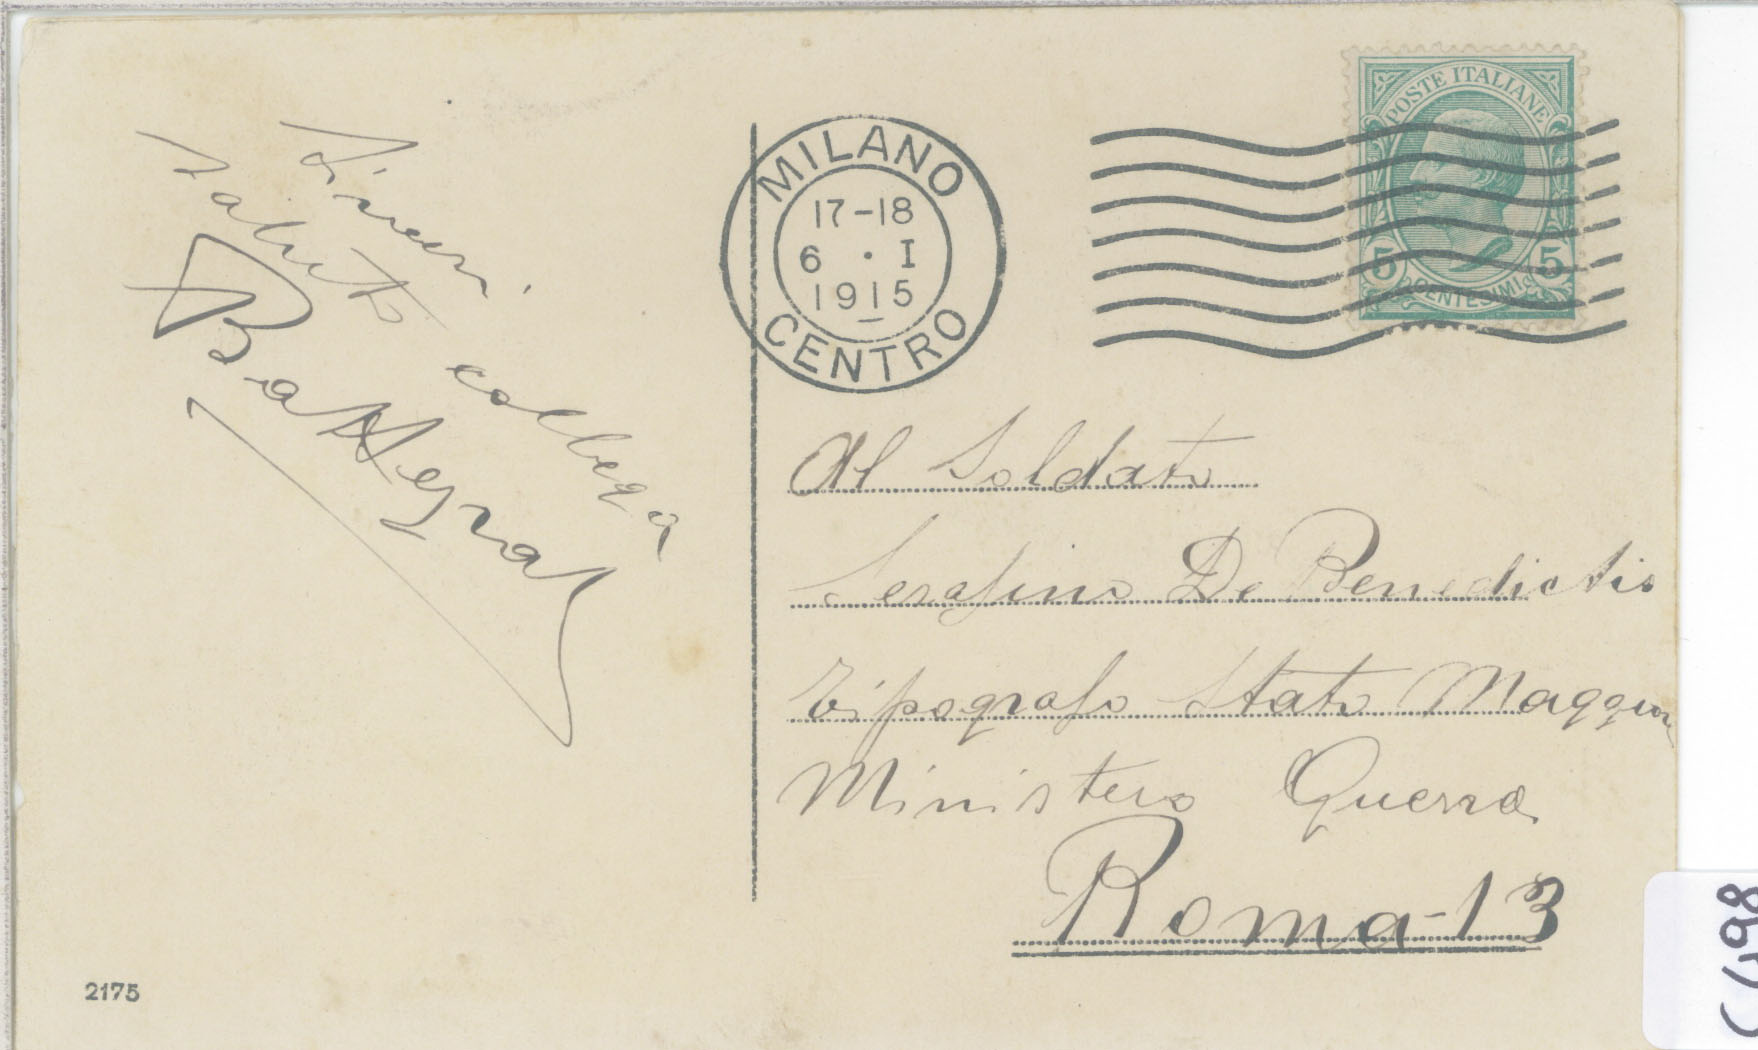 Sinceri
saluti collega
MILANO
17-18
6 · I
1915
CENTRO
POSTE ITALIANE
5 5
CENTESIMI
Al Soldato
Serafino De Benedictis
Tipografo Stato Maggior
Ministero Guerra
Roma-13
2175